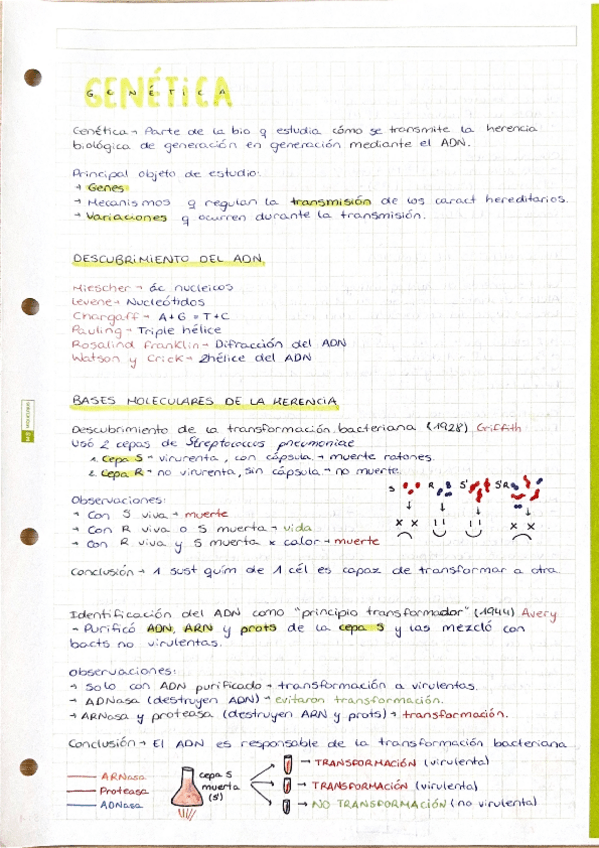 GENÉTICA
GENÉTICA
Genética → Parte de la bio q estudia cómo se transmite la herencia
biológica de generación en generación mediante el ADN.
Principal objeto de estudio:
→ Genes
→ Mecanismos q regulan la transmisión de los caract hereditarios.
→ Variaciones q ocurren durante la transmisión.
DESCUBRIMIENTO DEL ADN
Miescher → ác nucleicos
Levene → Nucleótidos
Chargaff → A+G = T+C
Pauling → Triple hélice
Rosalind Franklin → Difracción del ADN
Watson y Crick → 2hélice del ADN
BASES MOLECULARES DE LA HERENCIA
Descubrimiento de la transformación bacteriana (1928) Griffith
Usó 2 cepas de Streptococcus pneumoniae
1. Cepa S → virurenta, con cápsula → muerte ratones.
2. Cepa R → no virurenta, sin cápsula → no muerte.
S R S' S'R
Observaciones:
→ Con S viva → muerte
→ Con R viva o S muerta → vida
→ Con R viva y S muerta x calor → muerte
Conclusión → 1 sust quím de 1 cél es capaz de transformar a otra.
Identificación del ADN como "principio transformador" (1944) Avery
→ Purificó ADN, ARN y prots de la cepa S y las mezcló con
bacts no virulentas.
Observaciones:
→ Solo con ADN purificado → transformación a virulentas.
→ ADNasa (destruyen ADN) → evitaron transformación.
→ ARNasa y proteasa (destruyen ARN y prots) → transformación.
Conclusión → El ADN es responsable de la transformación bacteriana
ARNasa
Proteasa
ADNasa
cepa S
muerta
(S')
→ TRANSFORMACIÓN (virulenta)
→ TRANSFORMACIÓN (virulenta)
→ NO TRANSFORMACIÓN (no virulenta)